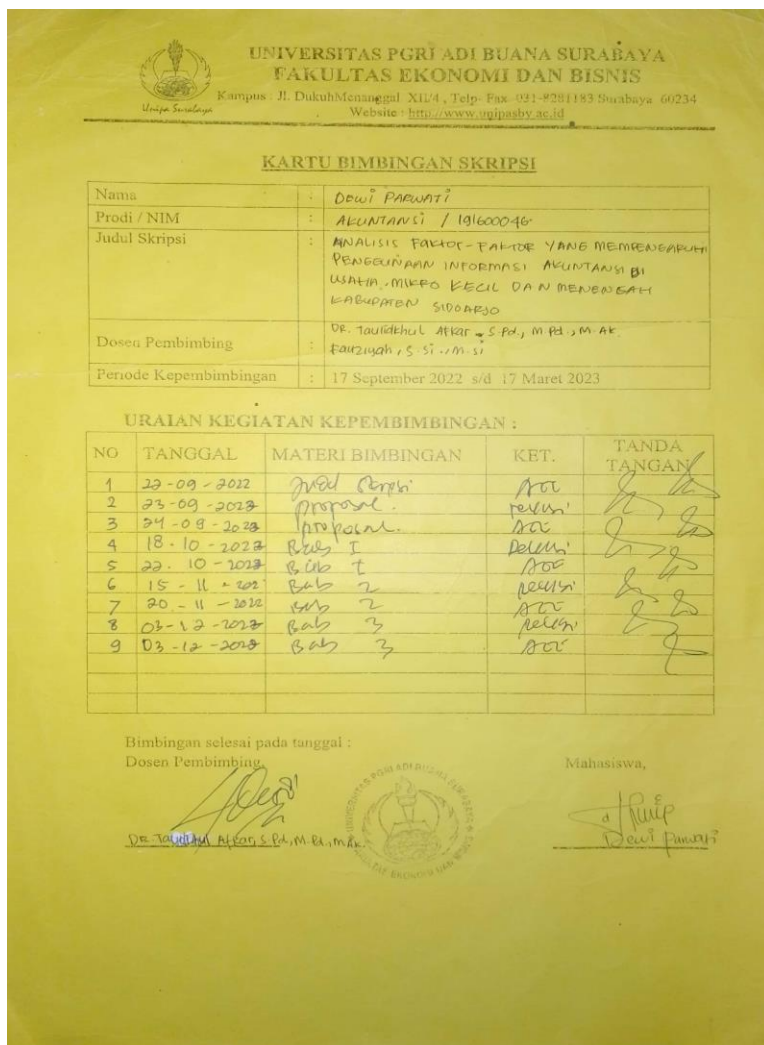 UNIVERSITAS PGRI ADI BUANA SURABAYA
FAKULTAS EKONOMI DAN BISNIS
Kampus : Jl. DukuhMenanggal XII/4 , Telp- Fax 031-8281183 Surabaya 60234
Website : http://www.unipasby.ac.id
Unipa Surabaya
KARTU BIMBINGAN SKRIPSI
Nama : DEWI PARWATI
Prodi / NIM : AKUNTANSI / 191600046
Judul Skripsi : ANALISIS FAKTOR-FAKTOR YANG MEMPENGARUHI
PENGGUNAAN INFORMASI AKUNTANSI DI
USAHA MIKRO KECIL DAN MENENGAH
KABUPATEN SIDOARJO
Dosen Pembimbing : DR. Taufidkhul Afkar, S.Pd., M.Pd., M.Ak.
Fauziyah, S.Si., M.Si
Periode Kepembimbingan : 17 September 2022 s/d 17 Maret 2023
URAIAN KEGIATAN KEPEMBIMBINGAN :
NO TANGGAL MATERI BIMBINGAN KET. TANDA TANGAN
1 22-09-2022 Judul Skripsi ACC
2 23-09-2022 proposal. revisi
3 24-09-2022 proposal. ACC
4 18-10-2022 Bab I Revisi
5 22-10-2022 Bab I ACC
6 15-11-202 Bab 2 revisi
7 20-11-2022 Bab 2 ACC
8 03-12-2022 Bab 3 revisi
9 03-12-2022 Bab 3 ACC
Bimbingan selesai pada tanggal :
Dosen Pembimbing, Mahasiswa,
Afkar, S.Pd, M.Pd., M.Ak. Dewi Parwati